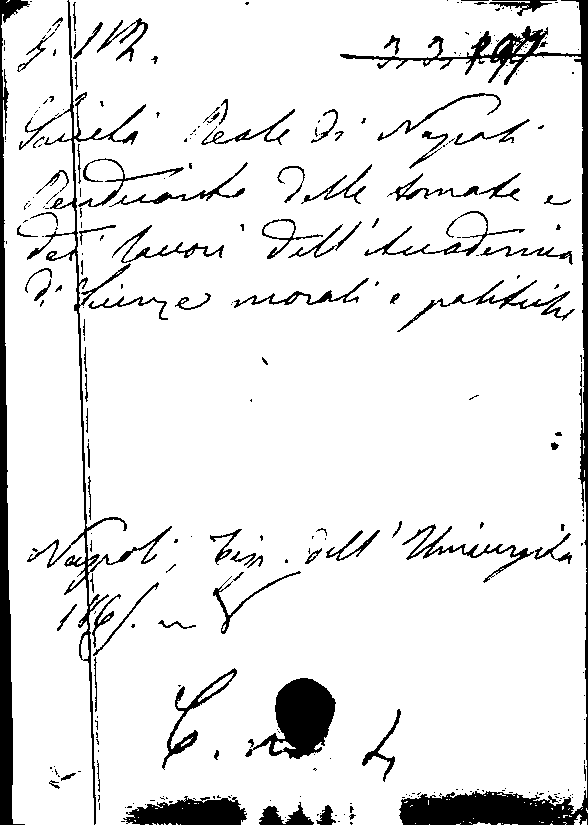 3. 3.
Società Reale di Napoli
Rendiconto delle tornate e
dei lavori dell'Accademia
di Scienze morali e politiche
Napoli, Tip. dell'Università
in 8
C.